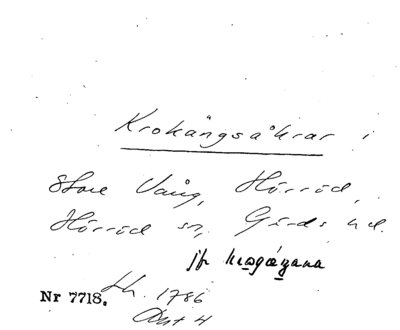 Krokängsåkrar i
Store Vång, Hörröd,
Hörröd sn, Gärds hd.
jfr
Nr 7718. Lh. 1786
Akt 4